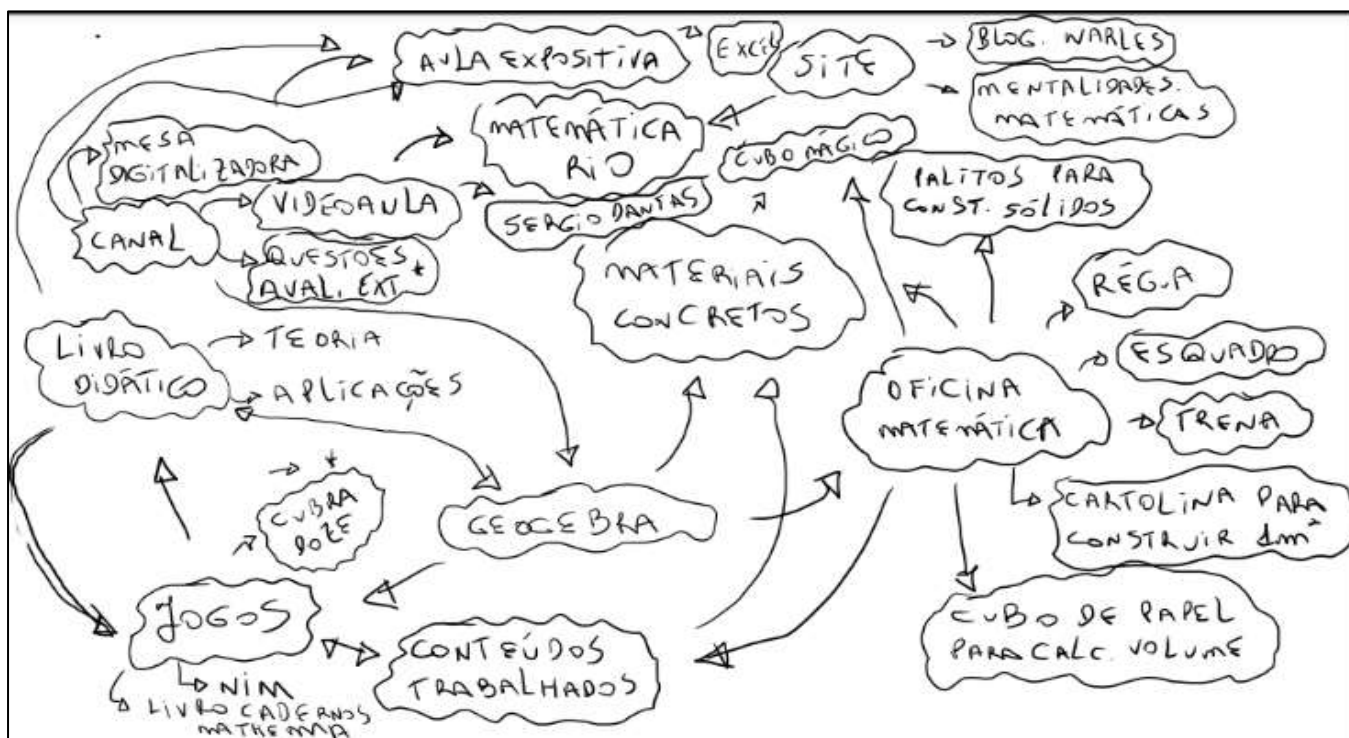 AULA EXPOSITIVA
EXCEL
SITE
BLOG. WARLES
MENTALIDADES.
MATEMÁTICAS
MESA
DIGITALIZADORA
MATEMÁTICA
RIO
CUBO MÁGICO
PALITOS PARA
CONST. SÓLIDOS
CANAL
VIDEOAULA
SERGIO DANTAS
QUESTÕES
AVAL. EXT *
MATERIAIS
CONCRETOS
RÉGUA
LIVRO
DIDÁTICO
TEORIA
APLICAÇÕES
ESQUADRO
OFICINA
MATEMÁTICA
TRENA
*
CUBRA
DOZE
GEOGEBRA
CARTOLINA PARA
CONSTRUIR 1m²
JOGOS
CONTEÚDOS
TRABALHADOS
CUBO DE PAPEL
PARA CALC. VOLUME
NIM
LIVRO CADERNOS
MATHEMA